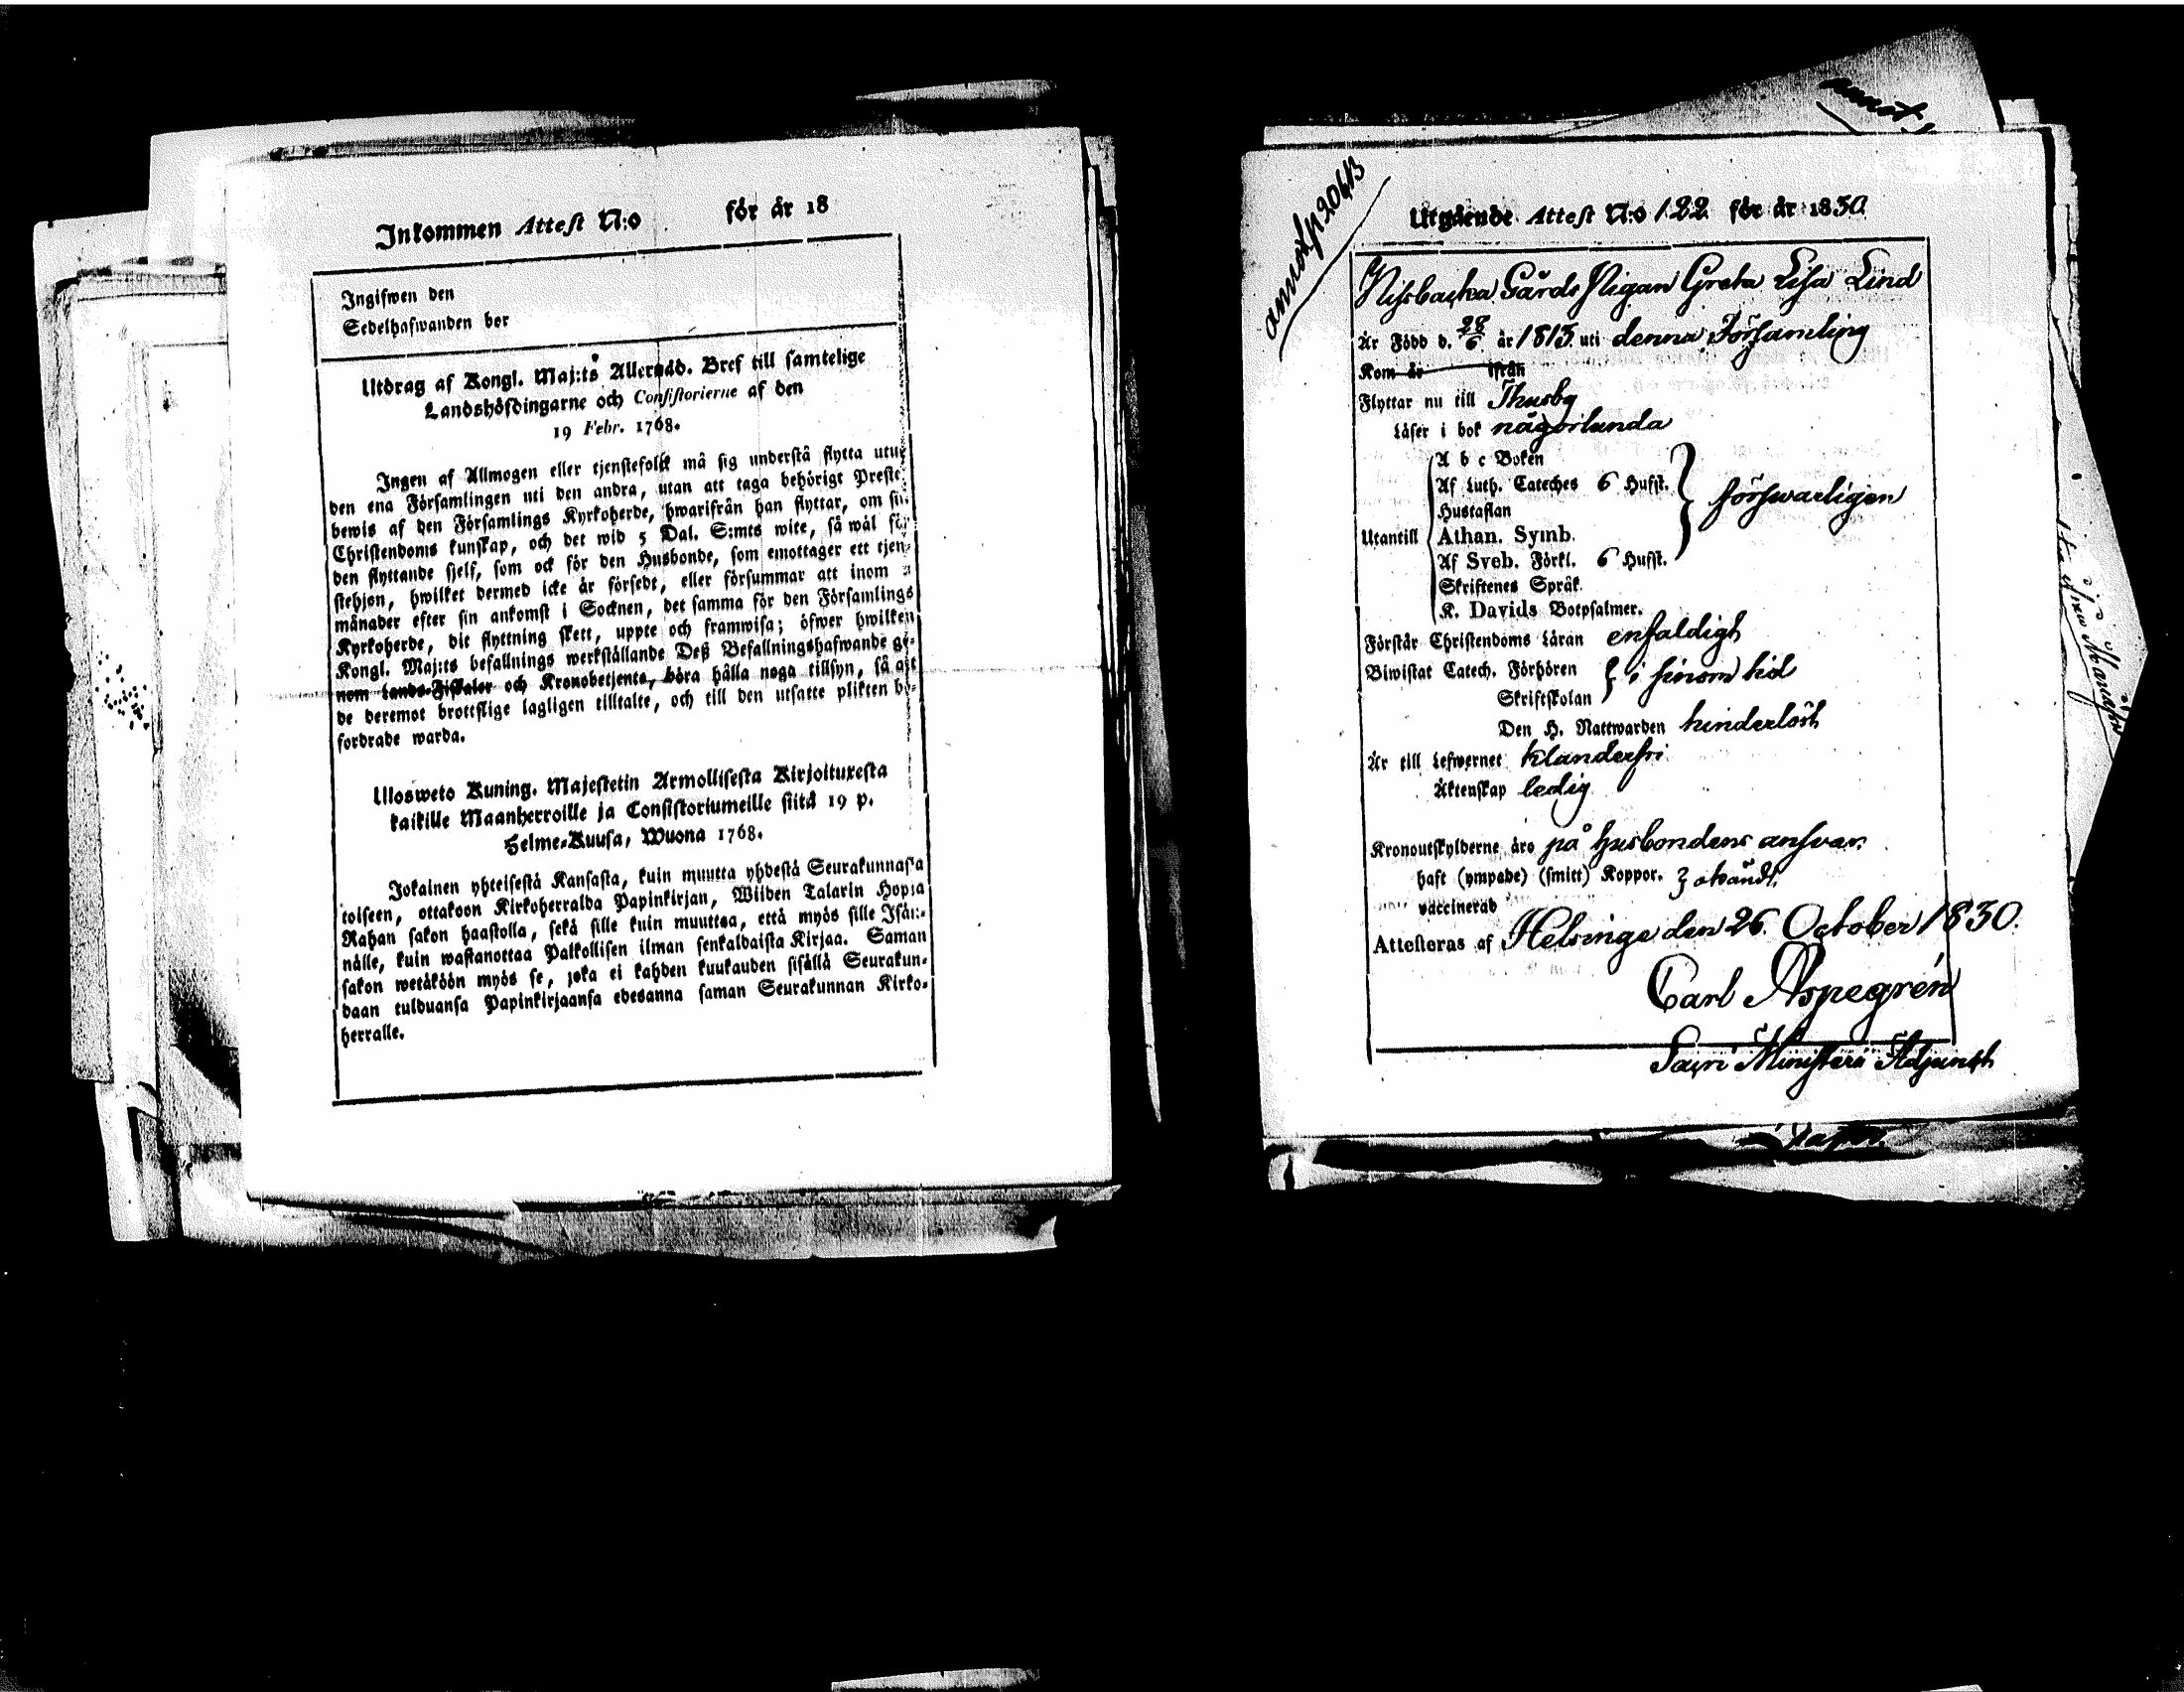 Inkommen Attest N:o för år 18
Ingifwen den
Sedelhafwanden bor
Utdrag af Kongl. Maj:ts Allernåd. Bref till samtelige
Landshöfdingarne och Consistorierne af den
19 Febr. 1768.
Ingen af Allmogen eller tjenstefolck må sig understå flytta utur
den ena Församlingen uti den andra, utan att taga behörigt Preste-
bewis af den Församlings Kyrkoherde, hwarifrån han flyttar, om sin
Christendoms kunskap, och det wid 5 Dal. S:mts wite, så wäl för
den flyttande sjelf, som ock för den Husbonde, som emottager ett tjen-
stehjon, hwilket dermed icke är försedt, eller försummar att inom 2
månader efter sin ankomst i Socknen, det samma för den Församlings
Kyrkoherde, dit flyttning skett, uppte och framwisa; öfwer hwilken
Kongl. Maj:ts befallnings werkställande Deß Befallningshafwande ge-
nom Lands-Fiskaler och Kronobetjente, böra hålla noga tillsyn, så att
de deremot brottslige lagligen tilltalte, och till den utsatte plikten be-
fordrade warda.
Ulosweto Kuning. Majestetin Armollisesta Kirjoituxesta
kaikille Maanherroille ja Consistoriumeille siitä 19 p.
Helme-Kuusa, Wuona 1768.
Jokainen yhteisestä Kansasta, kuin muutta yhdestä Seurakunnasta
toiseen, ottakoon Kirkoherralda Papinkirjan, Wiiden Talarin Hopia
Rahan sakon haastolla, sekä sille kuin muuttaa, että myös sille Isän-
nälle, kuin wastanottaa Palkollisen ilman senkaldaista Kirjaa. Saman
sakon wetäköön myös se, joka ei kahden kuukauden sisällä Seurakun-
daan tulduansa Papinkirjaansa edesanna saman Seurakunnan Kirko-
herralle.
annot p 206 13
Utgående Attest N:o 122 för år 1830
Nissbacka Gårds Pigan Greta Lisa Lind
Är Född d. 28/6 år 1813 uti denna Församling
Kom år ifrån
Flyttar nu till Thusby
Läser i bok någorlunda
A b c Boken
Af Luth. Cateches 6 Hufst.
Hustaflan
Utantill Athan. Symb. försvarligen
Af Sveb. Förkl. 6 Hufst.
Skriftenes Språk.
K. Davids Botpsalmer.
Förstår Christendoms Läran enfaldigt
Biwistat Catech. Förhören i sinom tid
Skriftskolan
Den H. Nattwarden hinderlöst
Är till Lefwernet klanderfri
Äktenskap ledig
Kronoutskylderne äro på husbondens ansvar.
haft (ympade) (smitt) Koppor. okändt.
vaccinerad
Attesteras af Helsinge den 26. October 1830.
Carl Aspegrén
Sacri Ministerii Adjunct